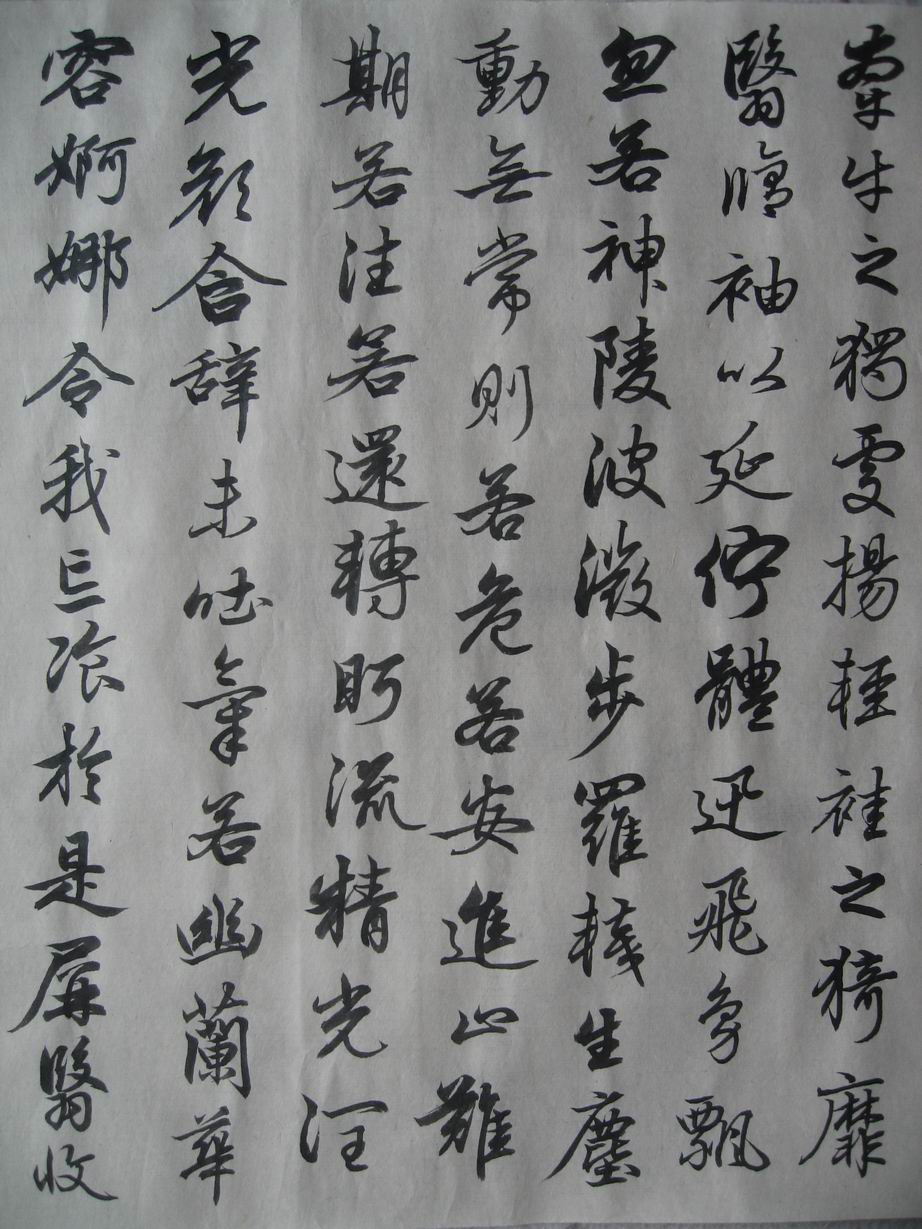 牽牛之獨處揚輕袿之猗靡
翳脩袖以延佇體迅飛鳧飄
忽若神陵波微步羅韈生塵
動無常則若危若安進止難
期若往若還轉眄流精光潤
光顏含辞未吐氣若幽蘭華
容婀娜令我忘飡於是屏翳收